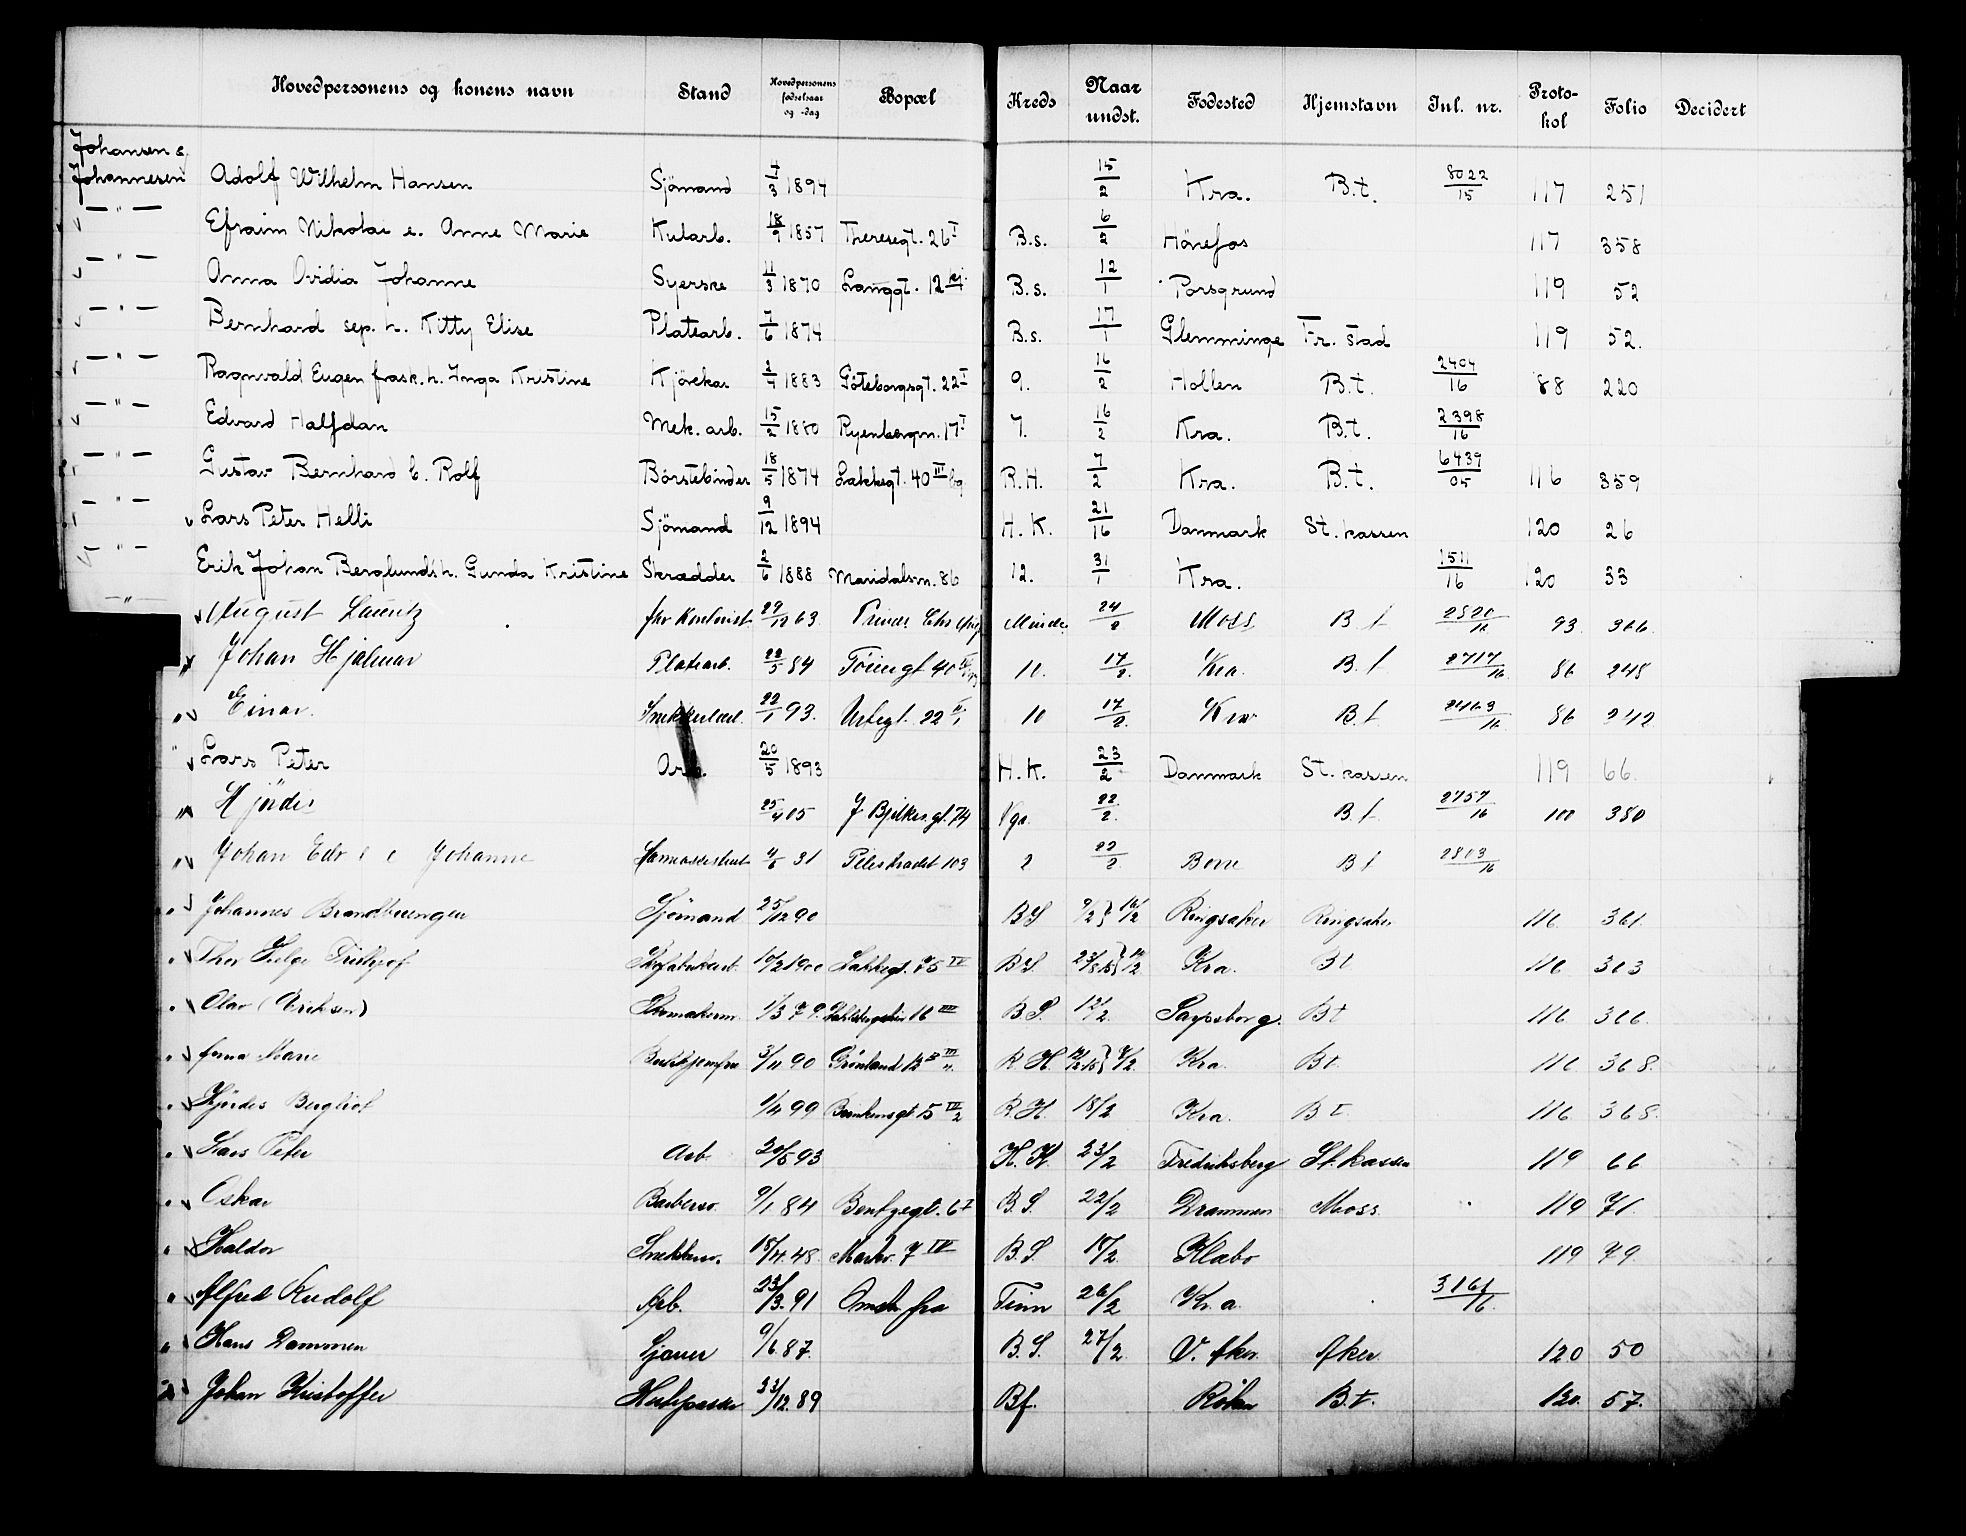 Hovedpersonens og konens navn Stand Hovedpersonens fødselsaar og -dag Bopæl Kreds Naar undst. Fødested Hjemstavn Jul. nr. Protokol Folio Decidert
Johansen &
Johannesen Adolf Wilhelm Hansen Sjömand 4/3 1894 15/2 Kra. B.t. 8022/15 117 251
— " — Efraim Nikolai e. Anne Marie Kularb. 18/9 1857 Theresegt. 26 I B.s. 6/2 Hönefos 117 358
— " — Anna Ovidia Johanne Syerske 11/3 1870 Langgt. 12 B.s. 12/1 Porsgrund 119 52
— " — Bernhard sep. h. Kitty Elise Platearb. 7/6 1874 B.s. 17/1 Glemminge Fr. stad 119 52.
— " — Ragnvald Eugen frask. h. Inga Kristine Kjörekar 2/7 1883 Göteborgsgt. 22 I 9. 16/2 Hollen B.t. 2404/16 88 220
— " — Edvard Halfdan Mek. arb. 15/2 1880 Ryenbergvn. 17 I 7. 16/2 Kra. B.t. 2398/16
— " — Gustav Bernhard b. Rolf Börstebinder 18/5 1874 Lakkegt. 40 III bg. R.H. 7/2 Kra. B.t. 6439/05 116 359
— " — Lars Peter Helli Sjömand 9/12 1894 H.K. 21/16 Danmark St. kassen 120 26
" — Erik Johan Berglundsh. Gunda Kristine Skrædder 2/6 1888 Maridalsvn. 86 12. 31/1 Kra. 1511/16 120 33
— " — August Lauritz fhv Kontorist 29/12 63 Minde 24/2 Moss B.t 2520/16 93 306.
" Johan Hjalmar Platearb. 22/5 84 Töiengt 40 10. 17/2. Kra. B.t 2717/16 86 248
" Einar. 22/1 93. Urtegt. 22 10 17/2. Kra B.t 2463/16 86 242
" Lars Peter Arb. 20/5 1893 H.K. 23/2 Danmark St. kassen 119 66.
" Hjördis 25/4 05 J Bjelkes gt. 74 Vga. 22/2. B.t. 2757/16 100 380
" Johan Edv e Johanne 4/6 31 Pilestrædet 103 2 22/2. Borre B t 2803/16
" Johannes Brandbuengen Sjömand 25/12 90 B S 9/2 } 16/2 Ringsaker Ringsaker 116 361.
" Thor Helge Fritjof 10/2 1900 Lakkegt. 75 IV B.S. 23/8 15 } 14/2 Kra. Bt 116 363
" Olav (Eriksen) Skomakerm. 1/3 79. 16 III B.S. 12/2. Sarpsborg. Bt 116 366.
" Anna Marie 3/11 90 Grönland 12 III R.H. 12/2 15 } 8/2. Kra. Bt. 116 368.
" Hjördis Bergliot 1/4 99 Brinkensgt. 15 IV/2 R.H. 18/2 Kra. B t. 116 368.
" Lars Peter Arb. 20/5 93 H.K. 23/2 Fredriksberg St. kassen 119 66
" Oskar Barbersv. 9/1. 84 Bentzegt. 6 I B.S. 22/2 Drammen Moss. 119 71.
" Haldor Snekkersv. 15/4. 48. Markv. 7 IV B.S. 18/2. Klæbo 119 79.
" Alfred Rudolf Arb. 23/3. 91 Omstr. fra Tinn 26/2 Kr.a. 3161/16.
" Hans Dammen Gjöver 9/6. 87. B.S. 27/2. V. Aker. Aker. 120 50
" Johan Kristoffer Hestepasser 23/12. 89 Bf. Röken B.t. 120. 57.